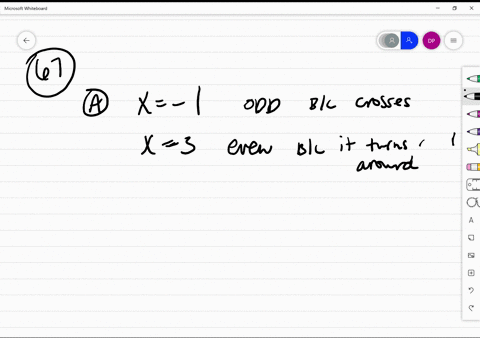 Microsoft Whiteboard
DP
67
A x = -1 ODD B/C crosses
x = 3 even B/C it turns
around
A